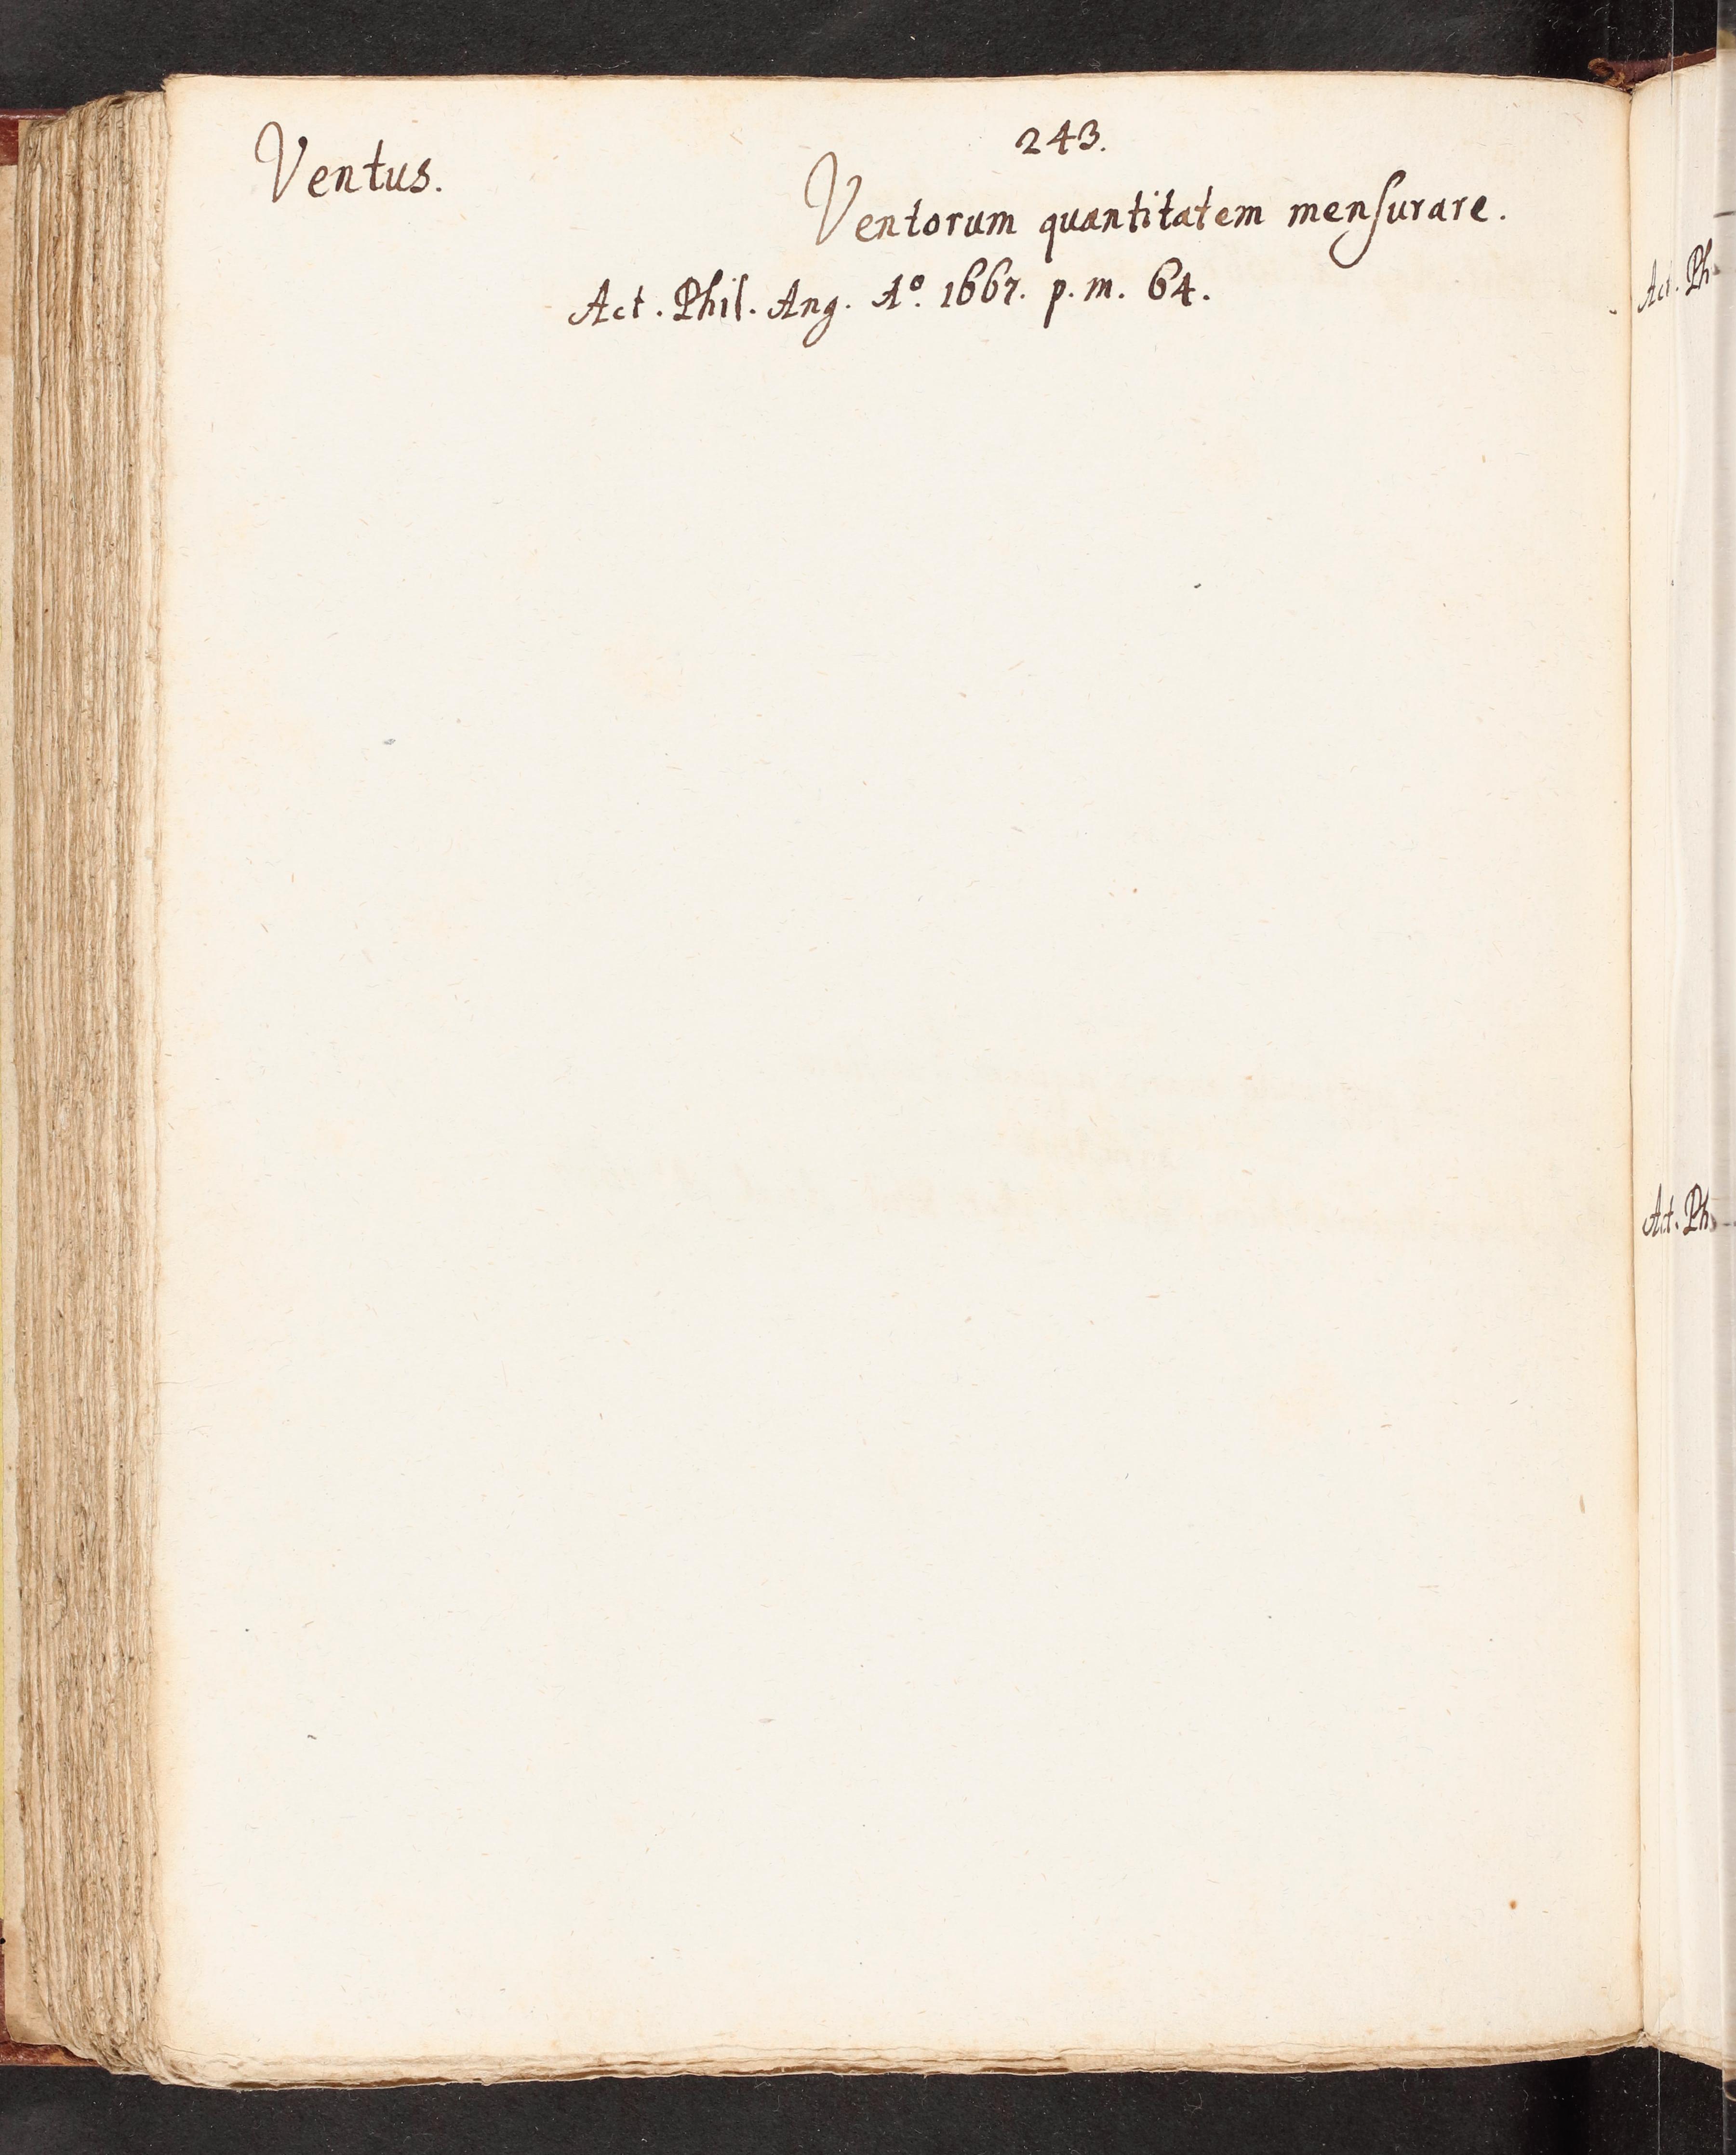 243.
Ventus.
Ventorum quantitatem menſurare.
Act. Phil. Ang. Aº. 1667. p. m. 64.
Act. Ph
Act. Ph